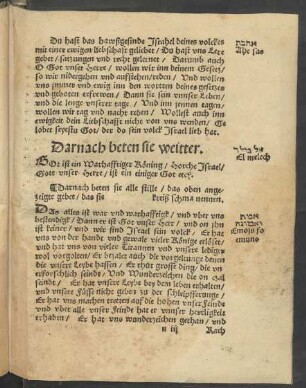 Du hast das hawßgesinde Israhel deines volckes
mit einer ewigen liebschaft geliebet / Du hast uns Lere
geben / satzungen und recht gelernet / Darumb auch
O Got unser Herre / wollen wir inn deinem Gesetz /
so wir nidergehen und aufstehen / reden / Und wollen
uns jmmer und ewig inn den worten deines gesetzes
und geboten erfrewen / Dann sie sein unnser Leben /
und die lenge unserer tage / Und inn jnnen tagen /
wollen wir tag und nacht reden / Wollest auch inn
ewigkeit dein Liebschafft nicht von uns wenden / Ge
lobet seyestu Got / der do sein volck Israel lieb hat.
אהבת
Ahe
Darnach beten sie weitter.
GOt ist ein Warhafftiger Köning / Horche Israel /
Gott unser Herre / ist ein einiger Got etc.
El melech
Darnach beten sie alle stille / das oben ange
zeigte gebet / das sie schma nennen.
DAs alles ist war und warhafftigk / und uber uns
bestendigk / Dann er ist Got unser Herr / und on jhn
ist keiner / und wir sind Israel sein volck / Er hat
uns von der hande und gewale vieler Könige erlöset /
und hat uns von vieler Tirannen und unserer ledig
wol vorgolten / Er bezalet auch die vorgeltung denen
die unsere Leybe hassen / Er thut grosse ding / die un
erforschlich seindt / Und Wunderzeichen die on zal
seindt / Er hat unsere Leybe bey dem leben erhalten /
und unsere Füsse nicht geben zu der schleipfferunge /
Er hat uns machen tretten auf die hohen unser Feinde
und uber alle unser Feinde hat er unnser herligkeit
erhaben / Er hat uns wunderzeichen gethan / und
אמת
n iij
Rach